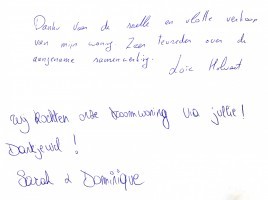 Dank voor de snelle en vlotte verkoop
van mijn woning Zeer tevreden over de
aangename samenwerking.
Loïc
Wij kochten onze droomwoning via jullie!
Dankjewel!
Sarah & Dominique